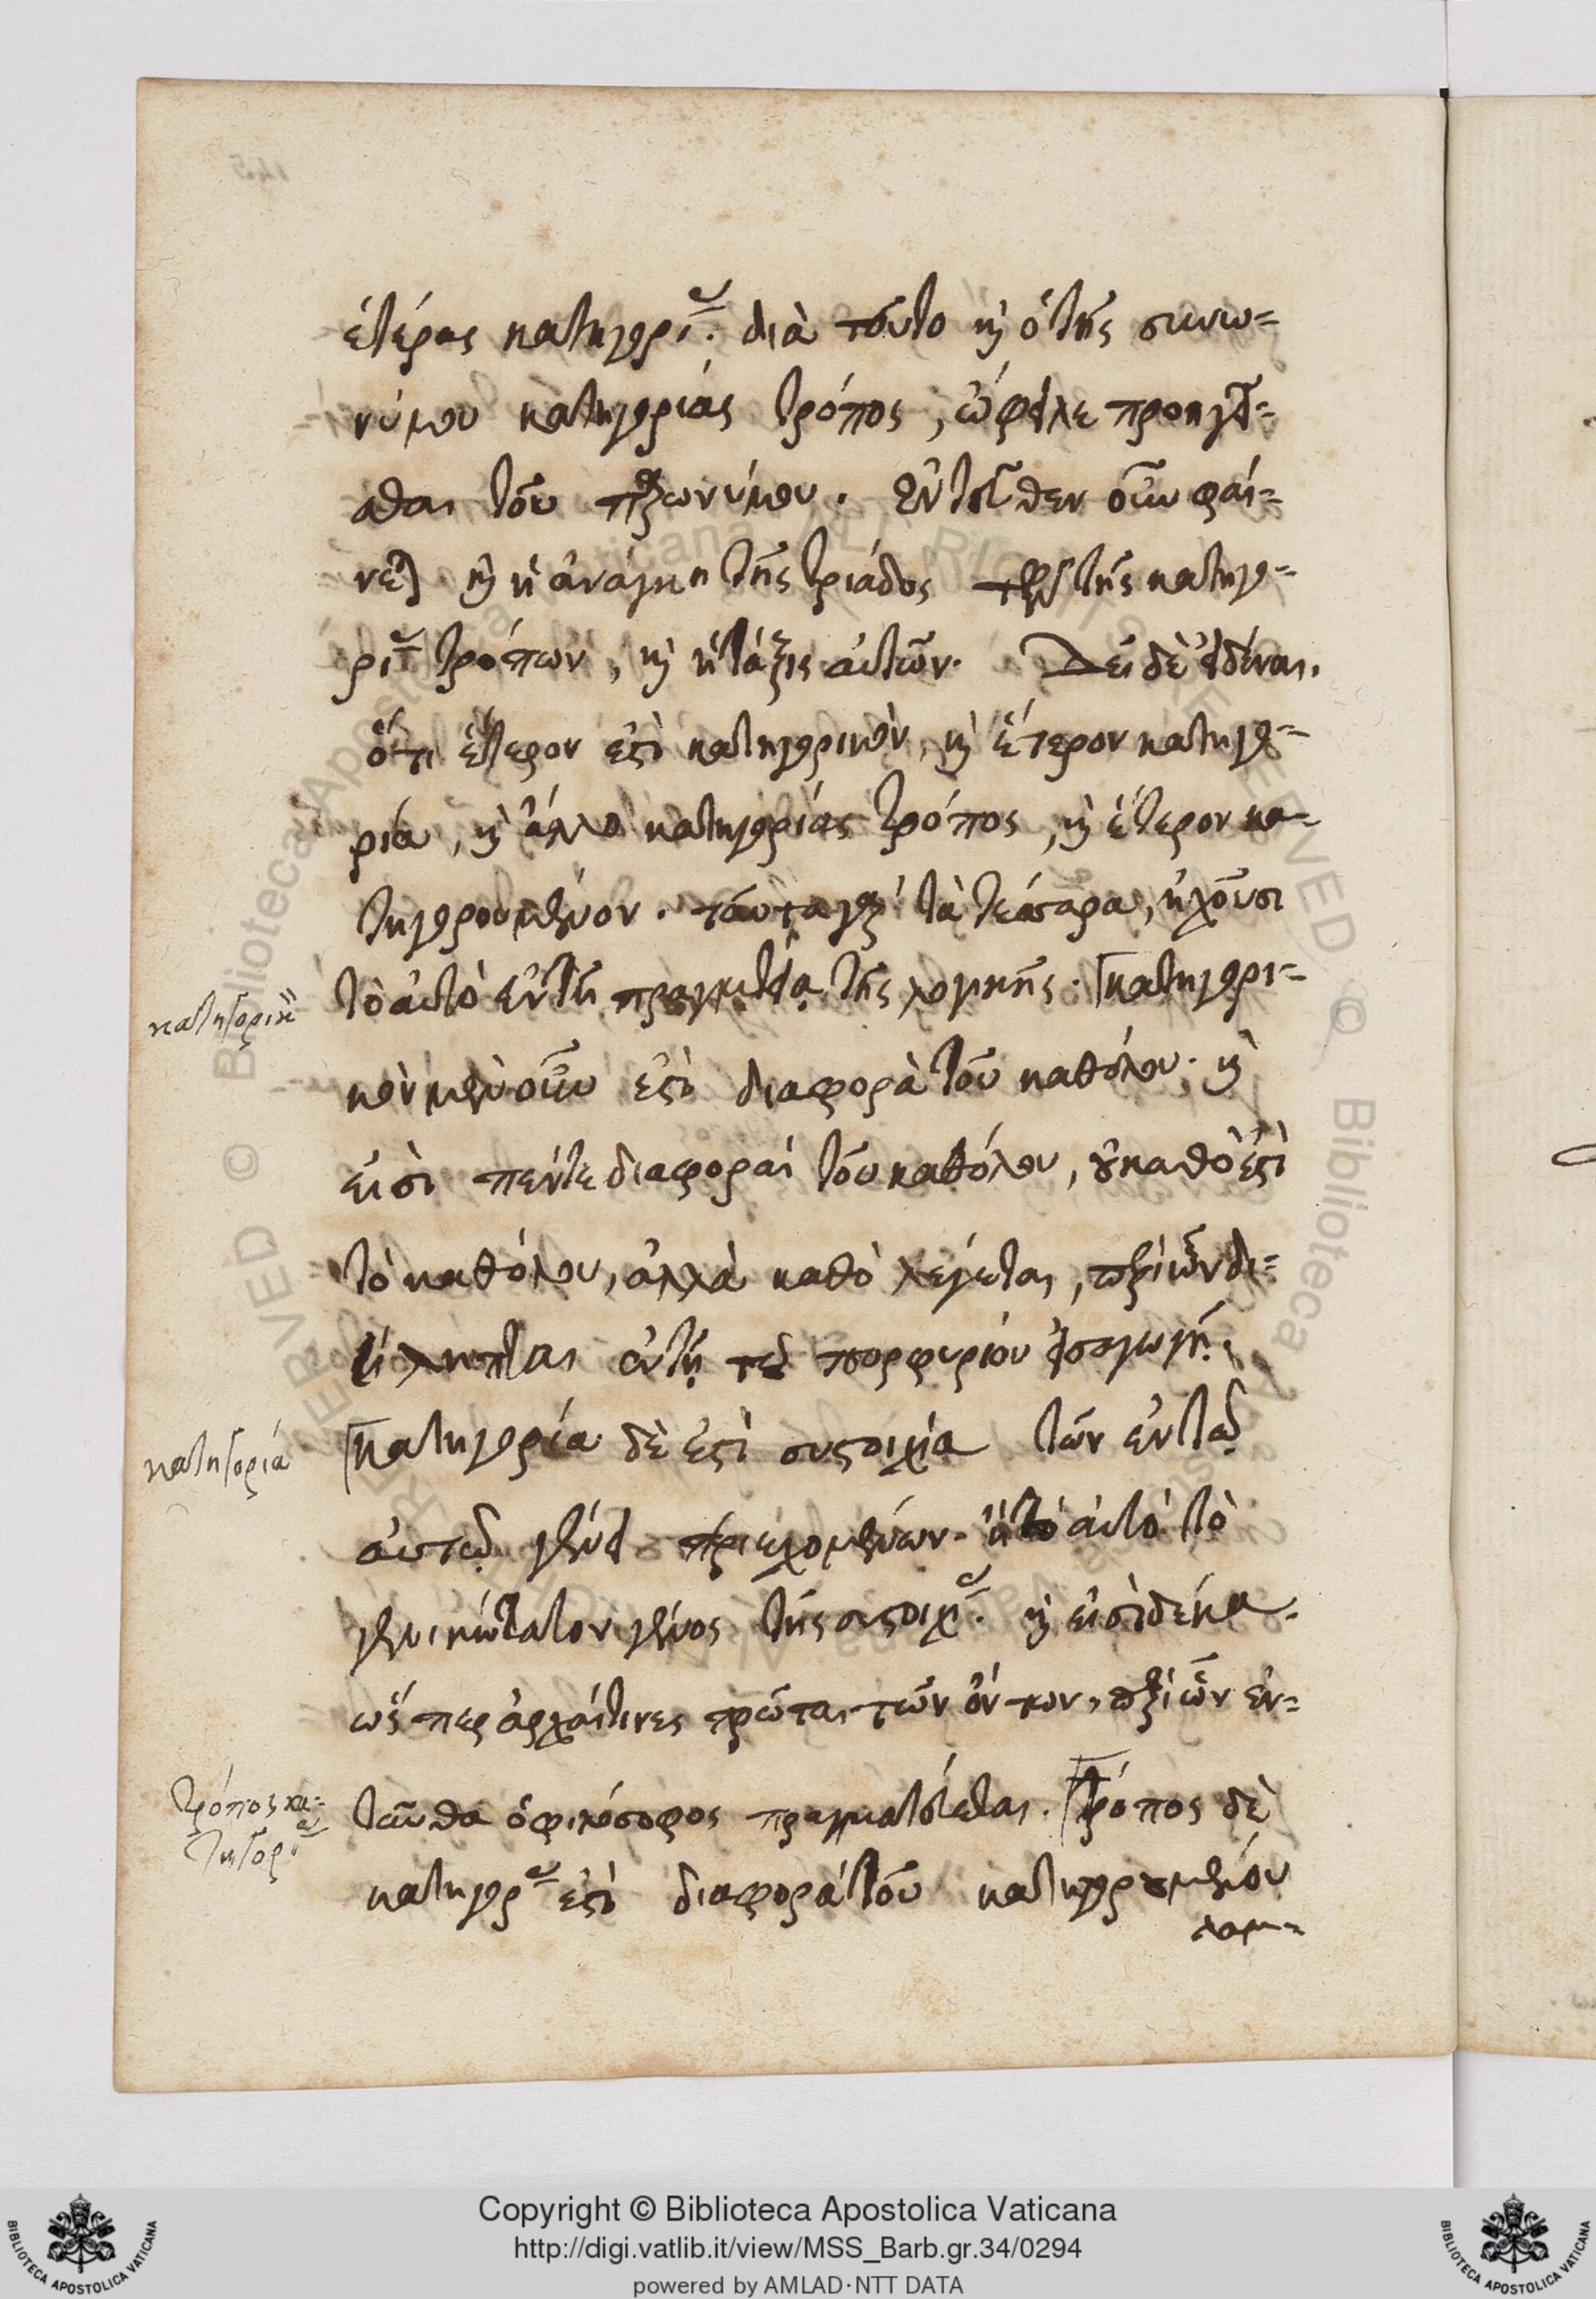 ἑτέρας κατηγορί. διὰ τοῦτο κὶ ὁ τῆς συνω-
νύμου κατηγορίας τρόπος, ὤφειλε προηγεῖ-
σθαι τοῦ παρωνύμου. ἐντεῦθεν οὖν φαί-
νεται κὶ ἡ ἀνάγκη τῆς τριάδος τῶν τῆς κατηγο-
ρί τρόπων, κὶ ἡ τάξις αὐτῶν. Δεῖ δὲ εἰδέναι.
ὅτι ἕτερον ἐστὶ κατηγορικὸν, κὶ ἕτερον κατηγο-
ρία, κὶ ἄλλο κατηγορίας τρόπος, κὶ ἕτερον κα-
τηγορουμένον. ταῦτα γὰρ τὰ τέσσαρα, ἠχοῦσι
κατηγορικ
τὸ αὐτὸ ἐν τῇ πραγματείᾳ τῆς λογικῆς. κατηγορι-
κὸν μὲν οὖν ἐστὶ διαφορὰ τοῦ καθόλου. κὶ
εἰσὶ πέντε διαφοραὶ τοῦ καθόλου, οὐ καθὸ ἐστὶ
τὸ καθόλου, ἀλλὰ καθὸ λέγεται, περὶ ὧν δι-
είληπται ἐν τῇ τοῦ πορφυρίου εἰσαγωγῇ.
κατηγορία
κατηγορία δὲ ἐστὶ συστοιχία τῶν ἐν τῷ
αὐτῷ γένει περιεχομένων. ἢ τὸ αὐτὸ τὸ
γενικώτατον γένος τῆς συστοιχί. κὶ εἰσὶ δέκα.
ὥσπερ ἀρχαί τινες πρῶται τῶν ὄντων, περὶ ὧν ἐν-
τρόπος κα-
τηγορί
ταῦθα ὁ φιλόσοφος πραγματεύεται. τρόπος δὲ
κατηγορ ἐστὶ διαφορὰ τοῦ κατηγορουμένου
λαμ-
Copyright © Biblioteca Apostolica Vaticana
http://digi.vatlib.it/view/MSS_Barb.gr.34/0294
powered by AMLAD·NTT DATA